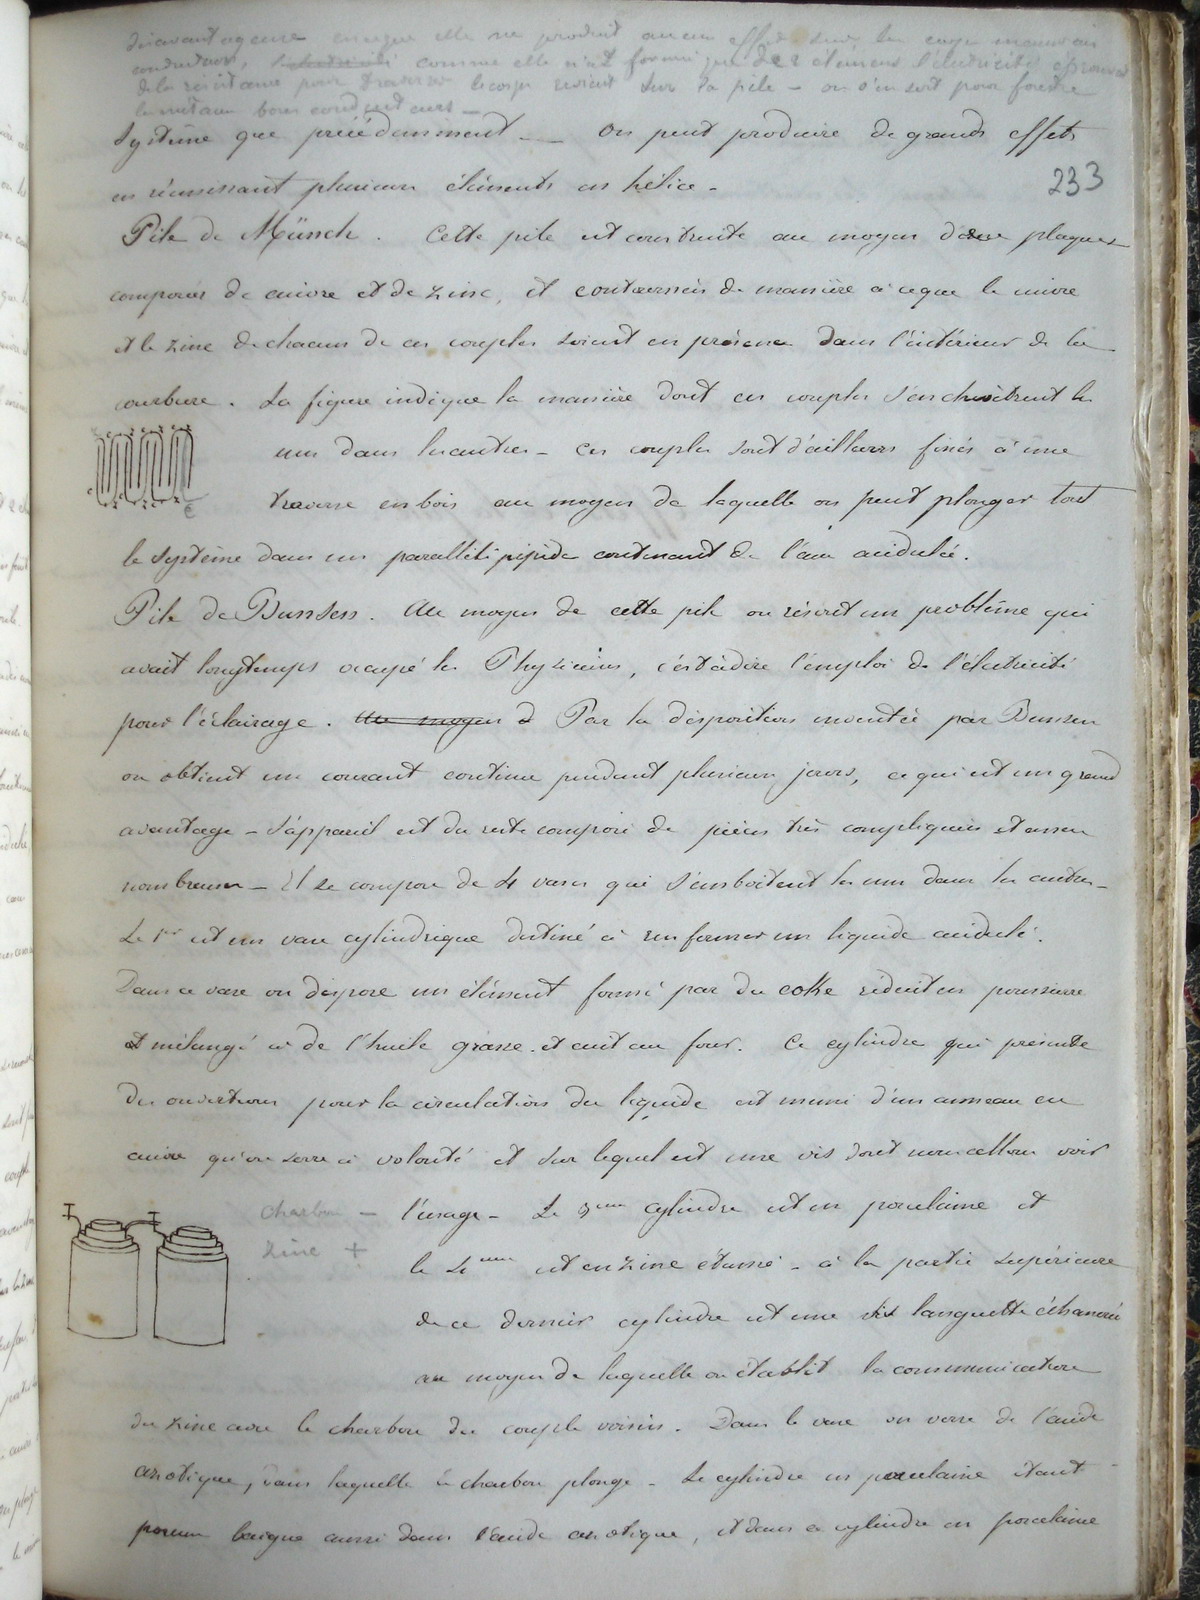 désavantageuse puisque elle ne produit aucun effet sur les corps mauvais
conducteurs, comme elle n'est formée que de 2 élémens l'électricité éprouve
de la résistance pour traverser le corps revient sur la pile - on s'en sert pour fondre
les métaux bons conducteurs -
système que précédemment - On peut produire de grands effets
en réunissant plusieurs éléments en hélice -
233
Pile de Münch. Cette pile est construite au moyen de plaques
composées de cuivre et de zinc, et contournées de manière à ce que le cuivre
et le zinc de chacun de ces couples soient en présence dans l'intérieur de la
courbure. La figure indique la manière dont ces couples s'enchevêtrent les
uns dans les autres - Ces couples sont d'ailleurs fixés à une
traverse en bois au moyen de laquelle on peut plonger tout
le système dans un parallélipipède contenant de l'eau acidulée.
Pile de Bunsen. Au moyen de cette pile on résout un problème qui
avait longtemps occupé les Physiciens, c'est à dire l'emploi de l'électricité
pour l'éclairage. Au moyen d Par la disposition inventée par Bunsen
on obtient un courant continu pendant plusieurs jours, ce qui est un grand
avantage - L'appareil est du reste composé de pièces très compliquées et assez
nombreuses - Il se compose de 4 vases qui s'emboitent les uns dans les autres -
Le 1er est un vase cylindrique destiné à renfermer un liquide acidulé.
Dans ce vase on dispose un élément formé par du coke réduit en poussière
et mélangé à de l'huile grasse et cuit au four. Ce cylindre qui présente
des ouvertures pour la circulation du liquide est muni d'un anneau en
cuivre qu'on serre à volonté et sur lequel est une vis dont nous allons voir
charbon - l'usage - Le 3eme cylindre est en porcelaine et
zinc + le 4eme est en zinc étamé - à la partie supérieure
de ce dernier cylindre est une vis languette échancrée
au moyen de laquelle on établit la communication
du zinc avec le charbon du couple voisin. Dans le vase en verre de l'acide
azotique, dans laquelle le charbon plonge - Le cylindre en porcelaine étant
poreux baigne aussi dans l'acide azotique, et dans ce cylindre en porcelaine